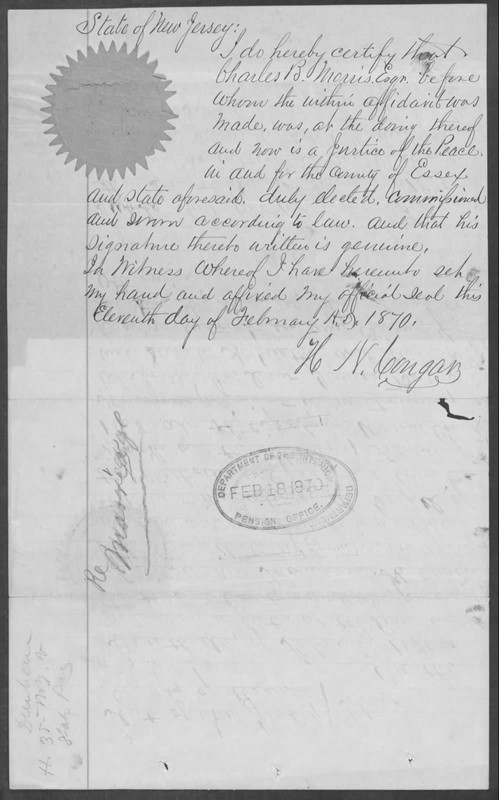 State of New Jersey:
I do hereby certify that
Charles B. Morris, Esqr. before
whom the within affidavit was
made, was, at the doing thereof
and now is a Justice of the Peace.
in and for the County of Essex
and state aforesaid. duly elected, commissioned
and sworn according to law. and that his
signature thereto written is genuine.
In Witness Whereof I have hereunto set
my hand and affixed my official seal this
Eleventh day of February A.D. 1870.
H. N. Congar
DEPARTMENT OF THE INTERIOR
FEB 18 1870
PENSION OFFICE.
Re
Marriage